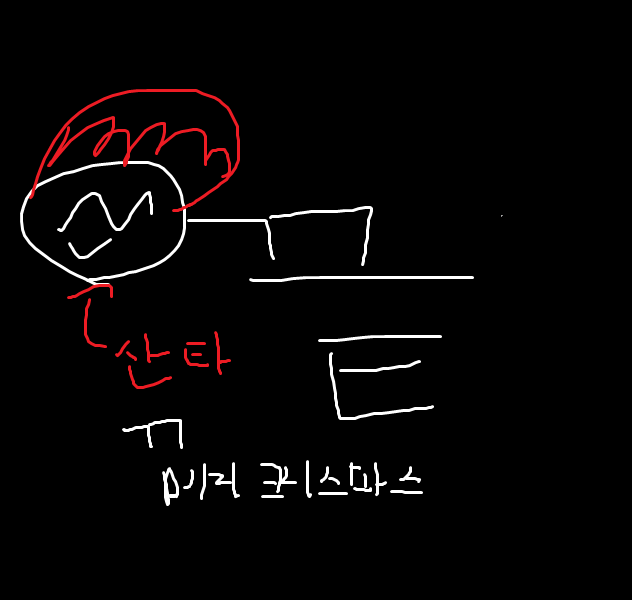 산타
메리 크리스마스